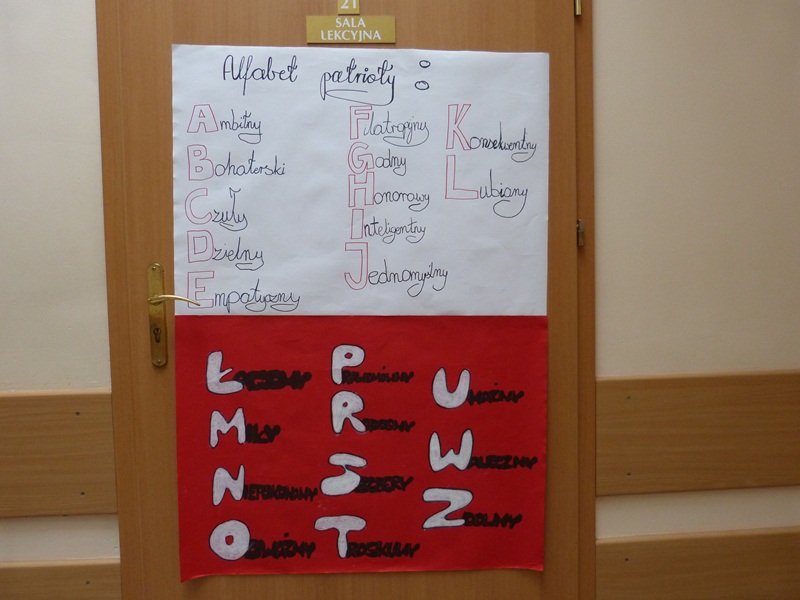 21
SALA
LEKCYJNA
Alfabet patrioty:
Ambitny
Bohaterski
Czuły
Dzielny
Empatyczny
Filatropijny
Godny
Honorowy
Inteligentny
Jednomyślny
Konsekwentny
Lubiany
Łagodny
Miły
Niepokonany
Odważny
Radosny
Szczery
Troskliwy
Uważny
Waleczny
Zdolny